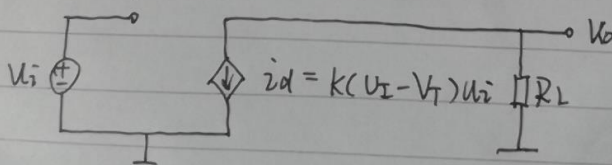 ui
+
-
id = K(UI-VT)ui
RL
Vo